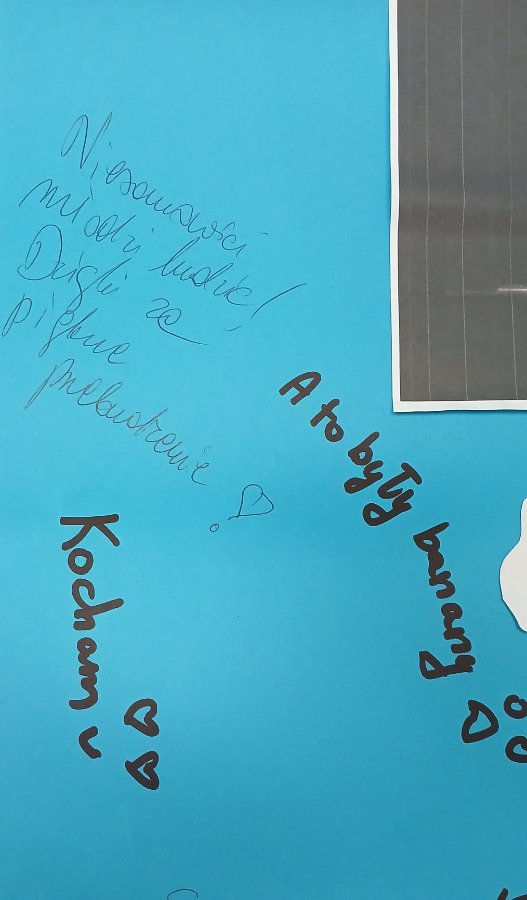 Niesamowici
młodzi ludzie!
Dzięki za
piękne
przebudzenie
A to były banany
Kocham